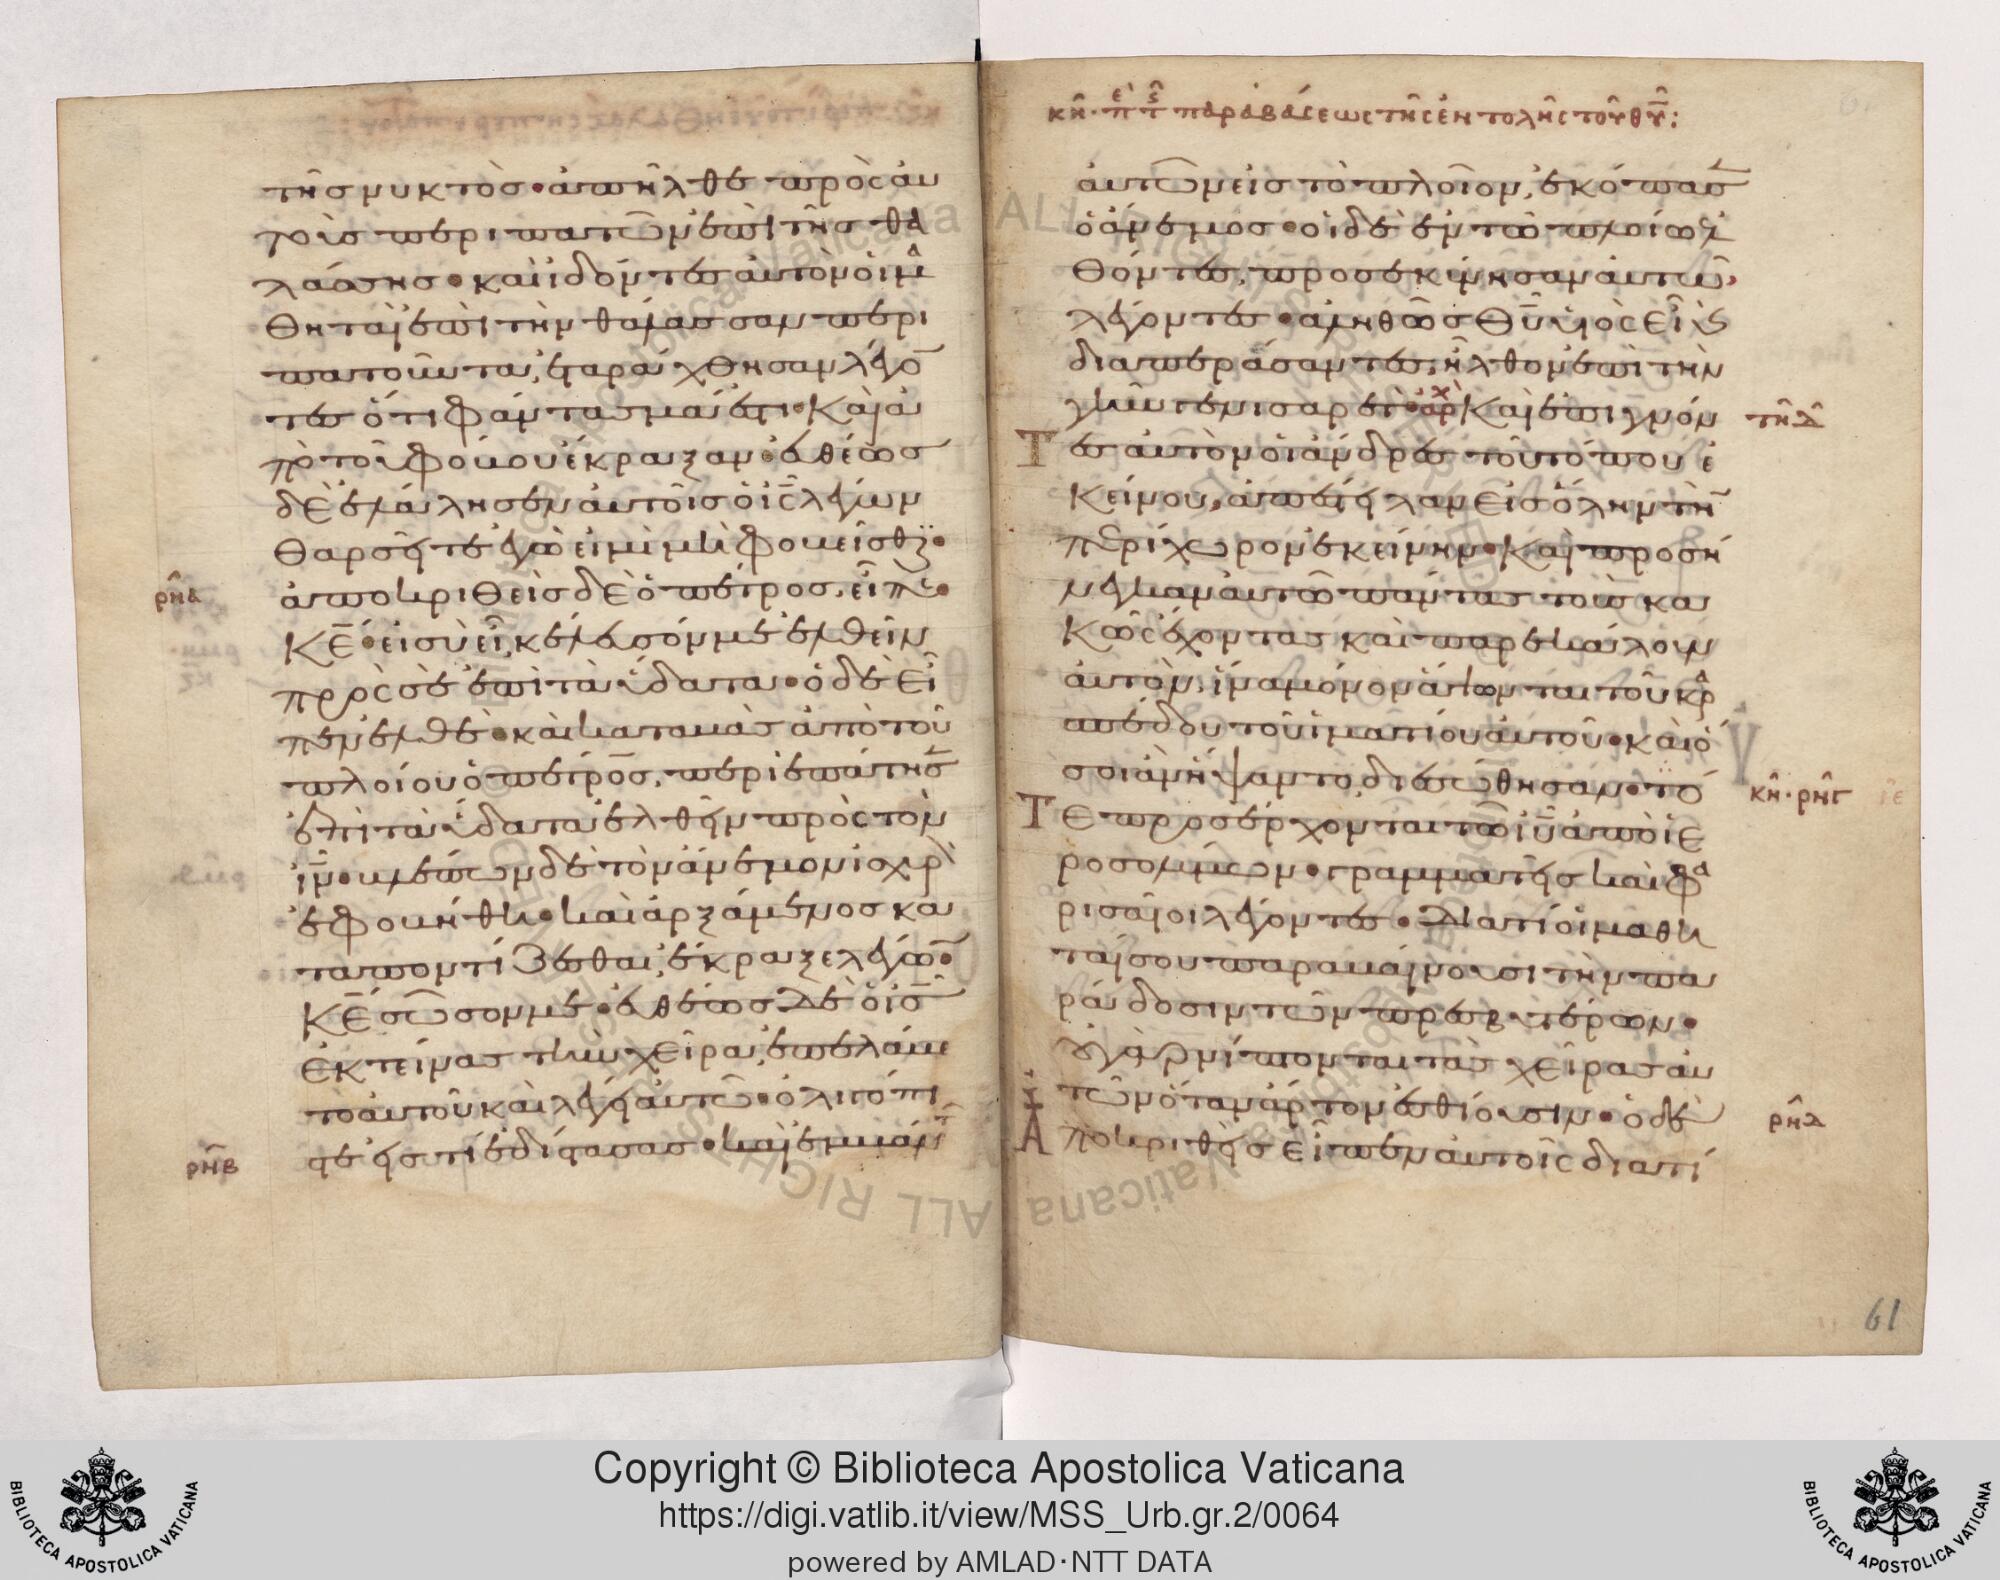 τῆσ νυκτὸσ· ἀπῆλθε πρὸς αυ
τοὺσ περιπατῶν ἐπὶ τῆσ θα
λάσσησ· καὶ ἰδόντεσ αὐτὸν οἱ μα
θηταὶ ἐπὶ τὴν θάλασσαν περι
πατοῦντα, ἐταράχθησαν λέγο
τεσ ὅτι φάντασμά ἐστι· Καὶ ἀ
πὸ τοῦ φόβου ἔκραξαν· εὐθέωσ
δὲ ἐλάλησεν αὐτοῖσ ὁ ις λέγων
Θαρσεῖτε ἐγώ εἰμι μὴ φοβεῖσθε·
ρ̅ν̅α
ἀποκριθεὶσ δὲ ὁ πέτροσ, εἶπε·
Κε· εἰ σὺ εἶ, κέλευσόν με ἐλθεῖν
πρὸς σὲ ἐπὶ τὰ ὕδατα· ὁ δὲ εἶ
πεν ἐλθέ· καὶ καταβὰσ ἀπὸ τοῦ
πλοίου ὁ πέτροσ, περιεπάτησ
ἐπὶ τὰ ὕδατα ἐλθεῖν πρὸς τὸν
ιν· βλέπων δὲ τὸν ἄνεμον ἰσχυρὸ
ἐφοβήθη· καὶ ἀρξάμενοσ κα
ταποντίζεσθαι, ἔκραξε λέγων·
Κε σῶσον με· εὐθέωσ δὲ ὁ ισ
ἐκτείνασ τὴν χεῖρα, ἐπελάβε
το αὐτοῦ καὶ λέγει αὐτῶ· ὀλιγόπι
στε εἰσ τί ἐδίστασασ· καὶ ἐμβάν
κη· περὶ τ παραβάσεως τῆς ἐντολῆς τοῦ θυ:
αὐτῶν εἰσ τὸ πλοῖον, ἐκόπασ
ὁ ἄνεμοσ· οἱ δὲ ἐν τῶ πλοίω ἐλ
θόντεσ, προσεκύνησαν αὐτῶ,
λέγοντεσ· ἀληθῶσ θυ υἱὸς εἶ
διαπεράσαντεσ, ἦλθον ἐπὶ τὴν
γῆν γενισαρέτ· ἀρχ Καὶ ἐπιγνόν
τεσ αὐτὸν οἱ ἄνδρεσ τοῦ τόπου ἐ
κείνου, ἀπέστειλαν εἰσ ὅλην τὴν
περίχωρον ἐκείνην· Καὶ προσή
νεγκαν αὐτῶ πάντασ τοὺσ κα
κῶς ἔχοντασ καὶ παρεκάλουν
αὐτόν, ἵνα μόνον ἅψωνται τοῦ κρ
ασπέδου τοῦ ἱματίου αὐτοῦ· καὶ ὅ
σοι ἂν ἥψαντο, διεσώθησαν· τό
κη· ρ̅ν̅γ
Τε προσέρχονται τῶ ιυ ἀπὸ ἱε
ροσολύμων· γραμματεῖσ καὶ φα
ρισαῖοι λέγοντεσ· Διατί οἱ μαθη
ταί σου παραβαίνουσι τὴν πα
ράδοσιν τῶν πρεσβυτέρων·
οὐ γὰρ νίπτονται τὰσ χεῖρασ αὐ
τῶν ὅταν ἄρτον ἐσθίουσιν· ὁ δὲ
ρ̅ν̅δ
Ἀποκριθεὶσ εἶπεν αὐτοῖς διατί
ρ̅ν̅β
61
Copyright © Biblioteca Apostolica Vaticana
https://digi.vatlib.it/view/MSS_Urb.gr.2/0064
powered by AMLAD·NTT DATA
BIBLIOTECA APOSTOLICA VATICANA
BIBLIOTECA APOSTOLICA VATICANA